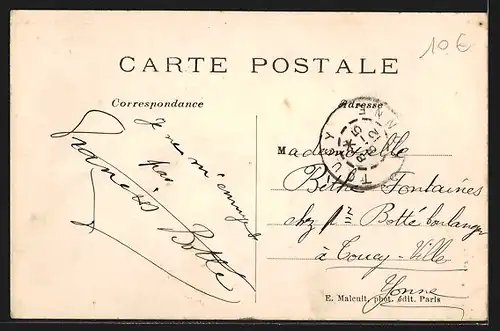 10 €
CARTE POSTALE
Correspondance
Adresse
Je ne m'ennuye
pas
Francis Botté
TOUCY
YONNE
Mademoiselle
Berthe Fontaines
chez Mr Botté boulanger
à Toucy-Ville
Yonne
E. Malcuit, phot. édit. Paris